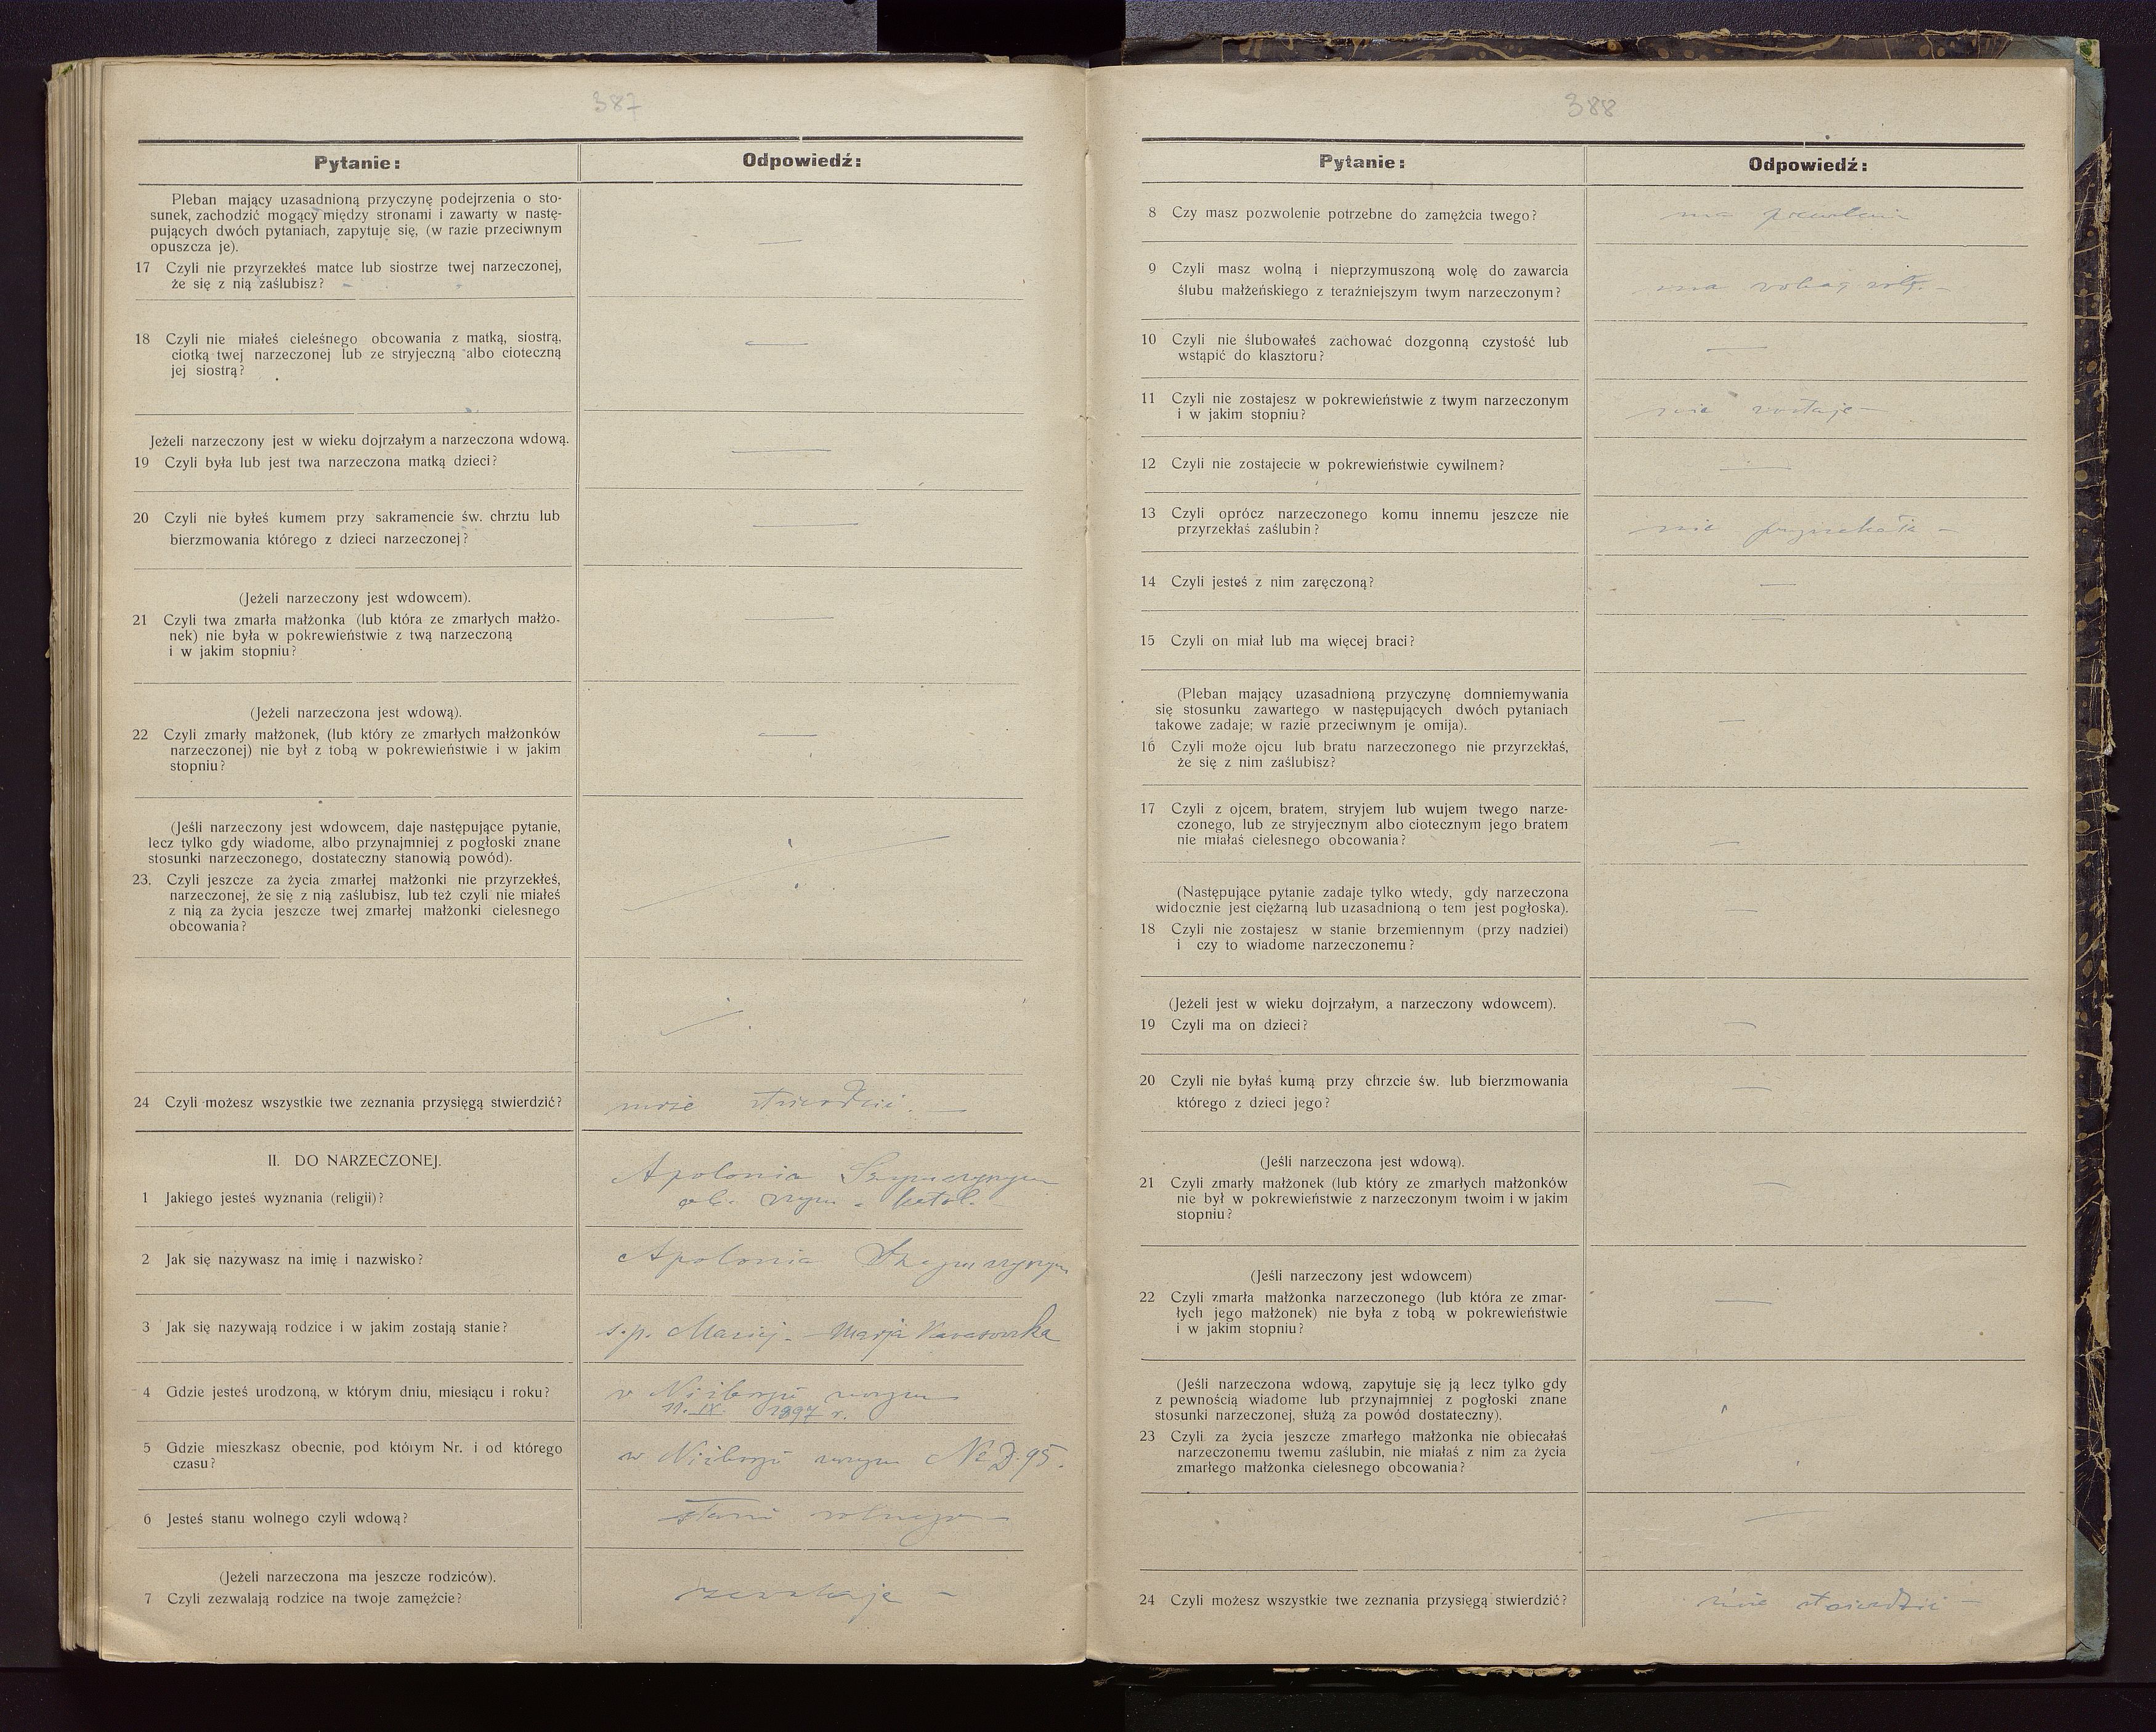 387
Pytanie:
Odpowiedź:
Pleban mający uzasadnioną przyczynę podejrzenia o sto-
sunek, zachodzić mogący między stronami i zawarty w nastę-
pujących dwóch pytaniach, zapytuje się, (w razie przeciwnym
opuszcza je).
17 Czyli nie przyrzekłeś matce lub siostrze twej narzeczonej,
że się z nią zaślubisz?
18 Czyli nie miałeś cieleśnego obcowania z matką, siostrą,
ciotką twej narzeczonej lub ze stryjeczną albo cioteczną
jej siostrą?
Jeżeli narzeczony jest w wieku dojrzałym a narzeczona wdową.
19 Czyli była lub jest twa narzeczona matką dzieci?
20 Czyli nie byłeś kumem przy sakramencie św. chrztu lub
bierzmowania którego z dzieci narzeczonej?
(Jeżeli narzeczony jest wdowcem).
21 Czyli twa zmarła małżonka (lub która ze zmarłych małżo-
nek) nie była w pokrewieństwie z twą narzeczoną
i w jakim stopniu?
(Jeżeli narzeczona jest wdową).
22 Czyli zmarły małżonek, (lub który ze zmarłych małżonków
narzeczonej) nie był z tobą w pokrewieństwie i w jakim
stopniu?
(Jeśli narzeczony jest wdowcem, daje następujące pytanie,
lecz tylko gdy wiadome, albo przynajmniej z pogłoski znane
stosunki narzeczonego, dostateczny stanowią powód).
23. Czyli jeszcze za życia zmarłej małżonki nie przyrzekłeś,
narzeczonej, że się z nią zaślubisz, lub też czyli nie miałeś
z nią za życia jeszcze twej zmarłej małżonki cielesnego
obcowania?
24 Czyli możesz wszystkie twe zeznania przysięgą stwierdzić?
może stwierdzić. —
II. DO NARZECZONEJ.
Apolonia
1 Jakiego jesteś wyznania (religii)?
katol.
2 Jak się nazywasz na imię i nazwisko?
Apolonia
3 Jak się nazywają rodzice i w jakim zostają stanie?
ś.p. Maciej - Marja
4 Gdzie jesteś urodzoną, w którym dniu, miesiącu i roku?
w Niżborgu
11. IX. 1897 r.
5 Gdzie mieszkasz obecnie, pod którym Nr. i od którego
czasu?
w Niżborgu 95.
6 Jesteś stanu wolnego czyli wdową?
stanu wolnego —
(Jeżeli narzeczona ma jeszcze rodziców).
7 Czyli zezwalają rodzice na twoje zamężcie?
388
Pytanie:
Odpowiedź:
8 Czy masz pozwolenie potrzebne do zamężcia twego?
ma
9 Czyli masz wolną i nieprzymuszoną wolę do zawarcia
ślubu małżeńskiego z teraźniejszym twym narzeczonym?
ma wolną wolę. —
10 Czyli nie ślubowałeś zachować dozgonną czystość lub
wstąpić do klasztoru?
11 Czyli nie zostajesz w pokrewieństwie z twym narzeczonym
i w jakim stopniu?
nie zostaje —
12 Czyli nie zostajecie w pokrewieństwie cywilnem?
13 Czyli oprócz narzeczonego komu innemu jeszcze nie
przyrzekłaś zaślubin?
nie przyrzekała —
14 Czyli jesteś z nim zaręczoną?
15 Czyli on miał lub ma więcej braci?
(Pleban mający uzasadnioną przyczynę domniemywania
się stosunku zawartego w następujących dwóch pytaniach
takowe zadaje; w razie przeciwnym je omija).
16 Czyli może ojcu lub bratu narzeczonego nie przyrzekłaś,
że się z nim zaślubisz?
17 Czyli z ojcem, bratem, stryjem lub wujem twego narze-
czonego, lub ze stryjecznym albo ciotecznym jego bratem
nie miałaś cielesnego obcowania?
(Następujące pytanie zadaje tylko wtedy, gdy narzeczona
widocznie jest ciężarną lub uzasadnioną o tem jest pogłoska).
18 Czyli nie zostajesz w stanie brzemiennym (przy nadziei)
i czy to wiadome narzeczonemu?
(Jeżeli jest w wieku dojrzałym, a narzeczony wdowcem).
19 Czyli ma on dzieci?
20 Czyli nie byłaś kumą przy chrzcie św. lub bierzmowania
którego z dzieci jego?
(Jeśli narzeczona jest wdową).
21 Czyli zmarły małżonek (lub który ze zmarłych małżonków
nie był w pokrewieństwie z narzeczonym twoim i w jakim
stopniu?
(Jeśli narzeczony jest wdowcem)
22 Czyli zmarła małżonka narzeczonego (lub która ze zmar-
łych jego małżonek) nie była z tobą w pokrewieństwie
i w jakim stopniu?
(Jeśli narzeczona wdową, zapytuje się ją lecz tylko gdy
z pewnością wiadome lub przynajmniej z pogłoski znane
stosunki narzeczonej, służą za powód dostateczny).
23 Czyli za życia jeszcze zmarłego małżonka nie obiecałaś
narzeczonemu twemu zaślubin, nie miałaś z nim za życia
zmarłego małżonka cielesnego obcowania?
24 Czyli możesz wszystkie twe zeznania przysięgą stwierdzić?
może stwierdzić —